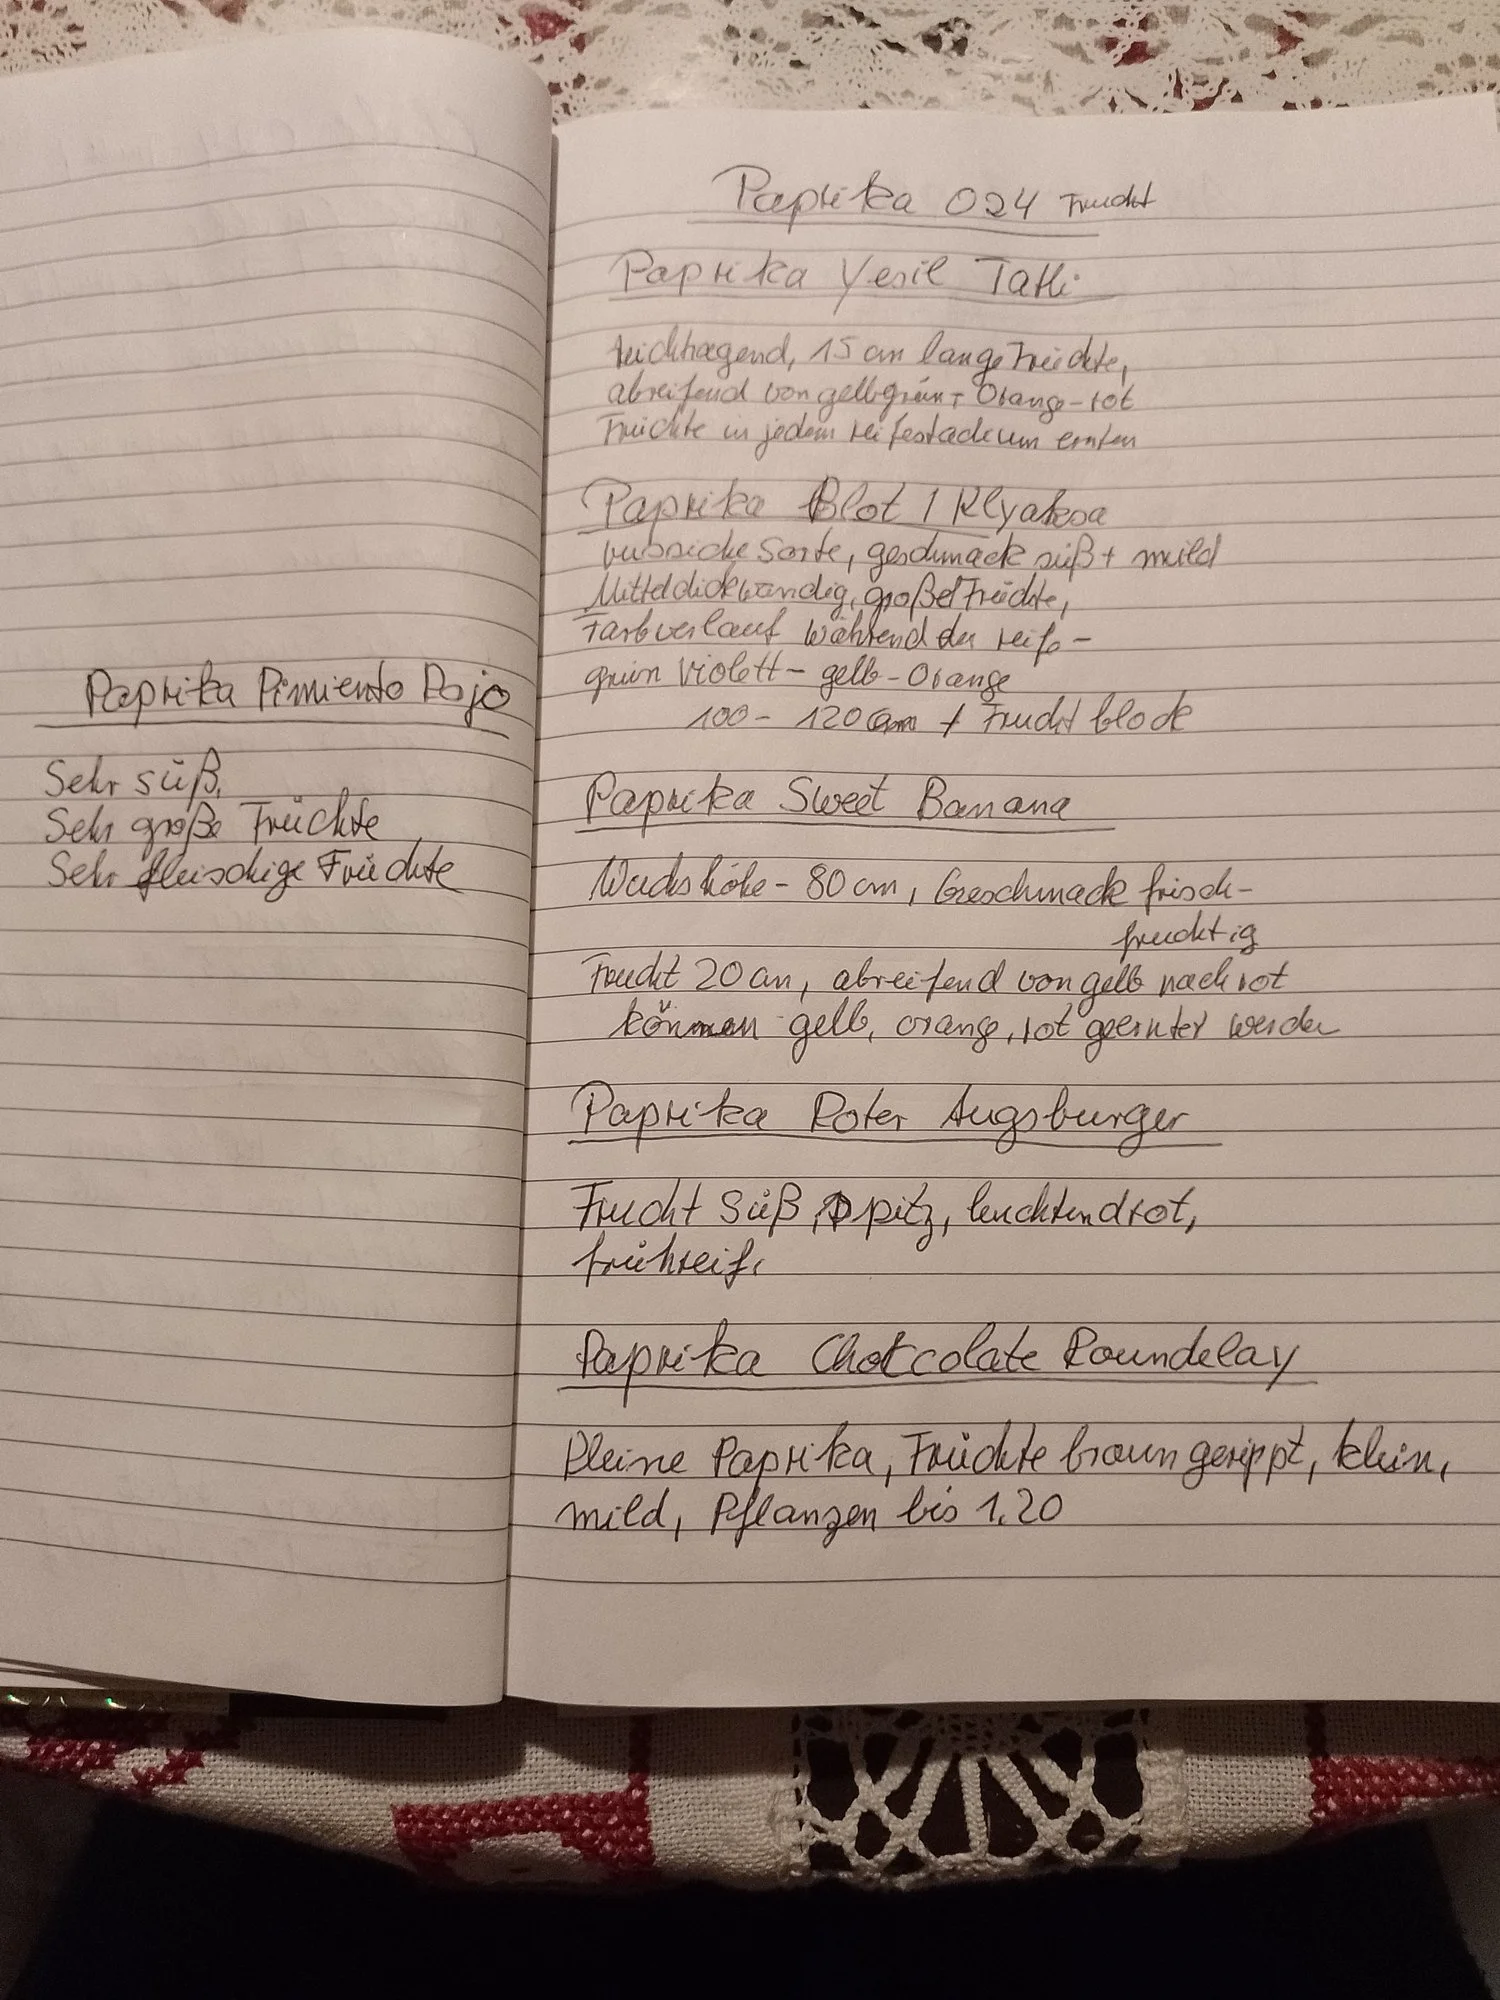 Paprika Pimiento Rojo
Sehr süß,
Sehr große Früchte
Sehr fleischige Früchte
Paprika 024 Frucht
Paprika Yesil Tatli
reichtragend, 15 cm lange Früchte,
abreifend von gelbgrün + Orange-rot
Früchte in jedem reifestadium ernten
Paprika Blot / Klyaksa
russiche Sorte, geschmack süß + mild
Mitteldickwandig, große Früchte,
Farbverlauf während der reife -
grün violett - gelb - Orange
100 - 120 cm + Frucht block
Paprika Sweet Banana
Wuchshöhe - 80 cm, Geschmack frisch-
fruchtig
Frucht 20 cm, abreifend von gelb nach rot
können gelb, orange, rot geerntet werden
Paprika Roter Augsburger
Frucht Süß, spitz, leuchtend rot,
frühreif.
Paprika Chocolate Roundelay
Kleine Paprika, Früchte braun gerippt, klein,
mild, Pflanzen bis 1.20